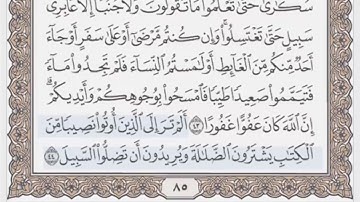 سُكَٰرَىٰ حَتَّىٰ تَعْلَمُوا۟ مَا تَقُولُونَ وَلَا جُنُبًا إِلَّا عَابِرِى
سَبِيلٍ حَتَّىٰ تَغْتَسِلُوا۟ۚ وَإِن كُنتُم مَّرْضَىٰٓ أَوْ عَلَىٰ سَفَرٍ أَوْ جَآءَ
أَحَدٌ مِّنكُم مِّنَ ٱلْغَآئِطِ أَوْ لَٰمَسْتُمُ ٱلنِّسَآءَ فَلَمْ تَجِدُوا۟ مَآءً
فَتَيَمَّمُوا۟ صَعِيدًا طَيِّبًا فَٱمْسَحُوا۟ بِوُجُوهِكُمْ وَأَيْدِيكُمْۗ
إِنَّ ٱللَّهَ كَانَ عَفُوًّا غَفُورًا ٤٣ أَلَمْ تَرَ إِلَى ٱلَّذِينَ أُوتُوا۟ نَصِيبًا مِّنَ
ٱلْكِتَٰبِ يَشْتَرُونَ ٱلضَّلَٰلَةَ وَيُرِيدُونَ أَن تَضِلُّوا۟ ٱلسَّبِيلَ ٤٤
٨٥